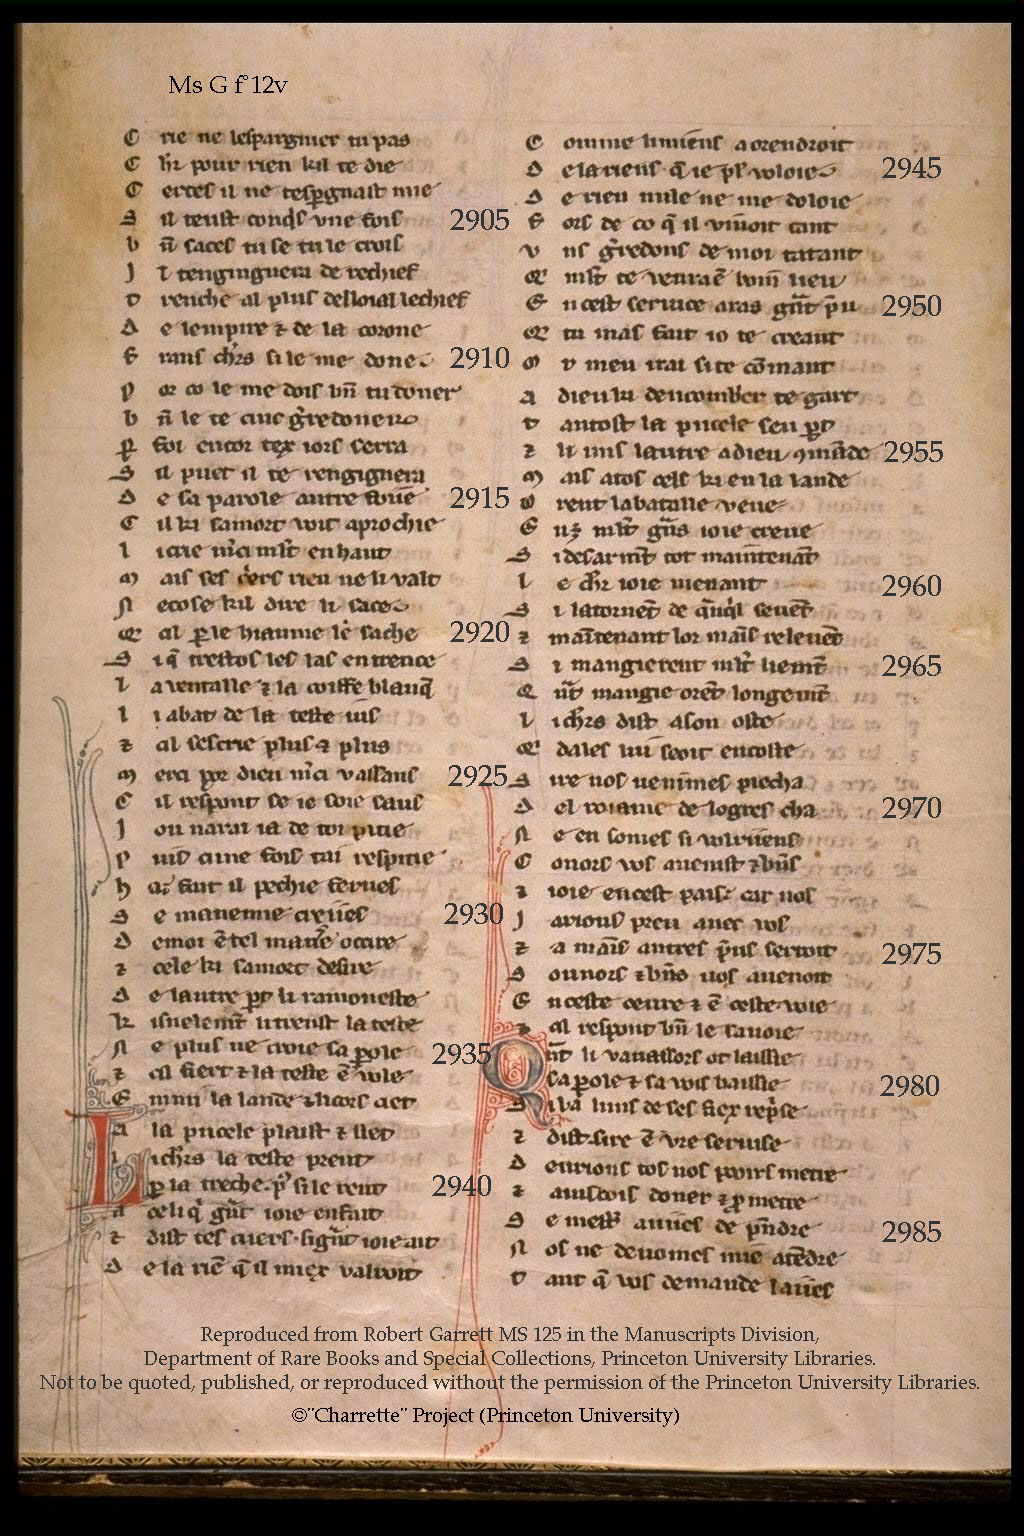 Ms G f° 12v
C rie ne lespargnier tu pas
C hr pour rien kil te die
C ertes il ne tespgnast mie
S il teust conqs vne fois
2905
b n faces tu se tu le crois
J l tenginguera de rechief
T renche al plus desloial le chief
D e lempire ⁊ de la corone
F rans chrs si le me done
2910
P or co le me dois bn tu doner
b n le te cuic gredoner
P foi encor tex iors serra
S il puet il te rengignera
D e sa parole autre foiie
2915
C il ki samort voit aprochie
L i crie mci mlt en haut
M ais ses criers rien ne li valt
N ecose kil dire li sace
Q al p le hiaume le sache
2920
S i q trestos les las en trence
L a ventaille ⁊ la coiffe blanq
L i abat de la teste ius
⁊ al sescrie plus ⁊ plus
M erci por dieu mci vassaus
2925
C il respont se ie soie saus
J ou narai ia de toi pitie
P uis cune fois tai respitie
H a fait il pechie feries
S e maneme creries
2930
D emoi e tel manre ocire
⁊ cele ki samort desire
D e lautre pt li ramoneste
K isnelemt li trenst la teste
N e plus ne croie sa pole
2935
⁊ cil fiert ⁊ la teste e vole
E mmi la lande ⁊ li cors ciet
L a la pucele plaist ⁊ siet
L i chrs la teste prent
P la treche pr si le rent
2940
A celi q grt ioie enfait
⁊ dist tes cuers si grt ioie ait
D e la rie q il miex valroit
C omme li miens a orendroit
D e la riens q ie pl voloie
2945
D e rien nule ne me doloie
F ors de co q il viuoit tant
V ns gredons de moi tatant
Q mlt te venra e bom lieu
E n cest seruice aras grt pu
2950
Q tu mas fait io te creant
O v men irai si te comant
A dieu ki dencombrer te gart
T antost la pucele sen pt
⁊ li uns lautre a dieu comade
2955
M ais atos cels ki en la lande
O rent la bataille veue
E nz mlt grs ioie creue
S i desarmt tot maintenat
L e chr ioie menant
2960
S i latornet de qnql seuet
⁊ maitenant lor mais releuet
S i mangierent mlt liemt
2965
Q nt mangie oret longemt
L i chrs dist a son oste
Q dales lui seoit encoste
S ire nos venimes piecha
D el roiame de logres cha
2970
N e en somes si volriens
C onors vos auenist ⁊ bns
⁊ ioie en cest pais car nos
J arions preu auec vos
⁊ a mais autres pus seroit
2975
S ounors ⁊ bns nos auenoit
E n ceste oeure ⁊ e ceste voie
⁊ cil respont bn le sauoie
Q nt li vauassors ot laissie
Sa pole ⁊ sa vois baissie
2980
S i la luns de ses fiex reprse
⁊ dist sire e vre seruise
D eurions tos nos pooirs metre
⁊ aincois doner ⁊ pmetre
S e mestr auies de pndre
2985
N os ne deuomes mie atedre
T ant q vos demande laues
Reproduced from Robert Garrett MS 125 in the Manuscripts Division,
Department of Rare Books and Special Collections, Princeton University Libraries.
Not to be quoted, published, or reproduced without the permission of the Princeton University Libraries.
©"Charrette" Project (Princeton University)